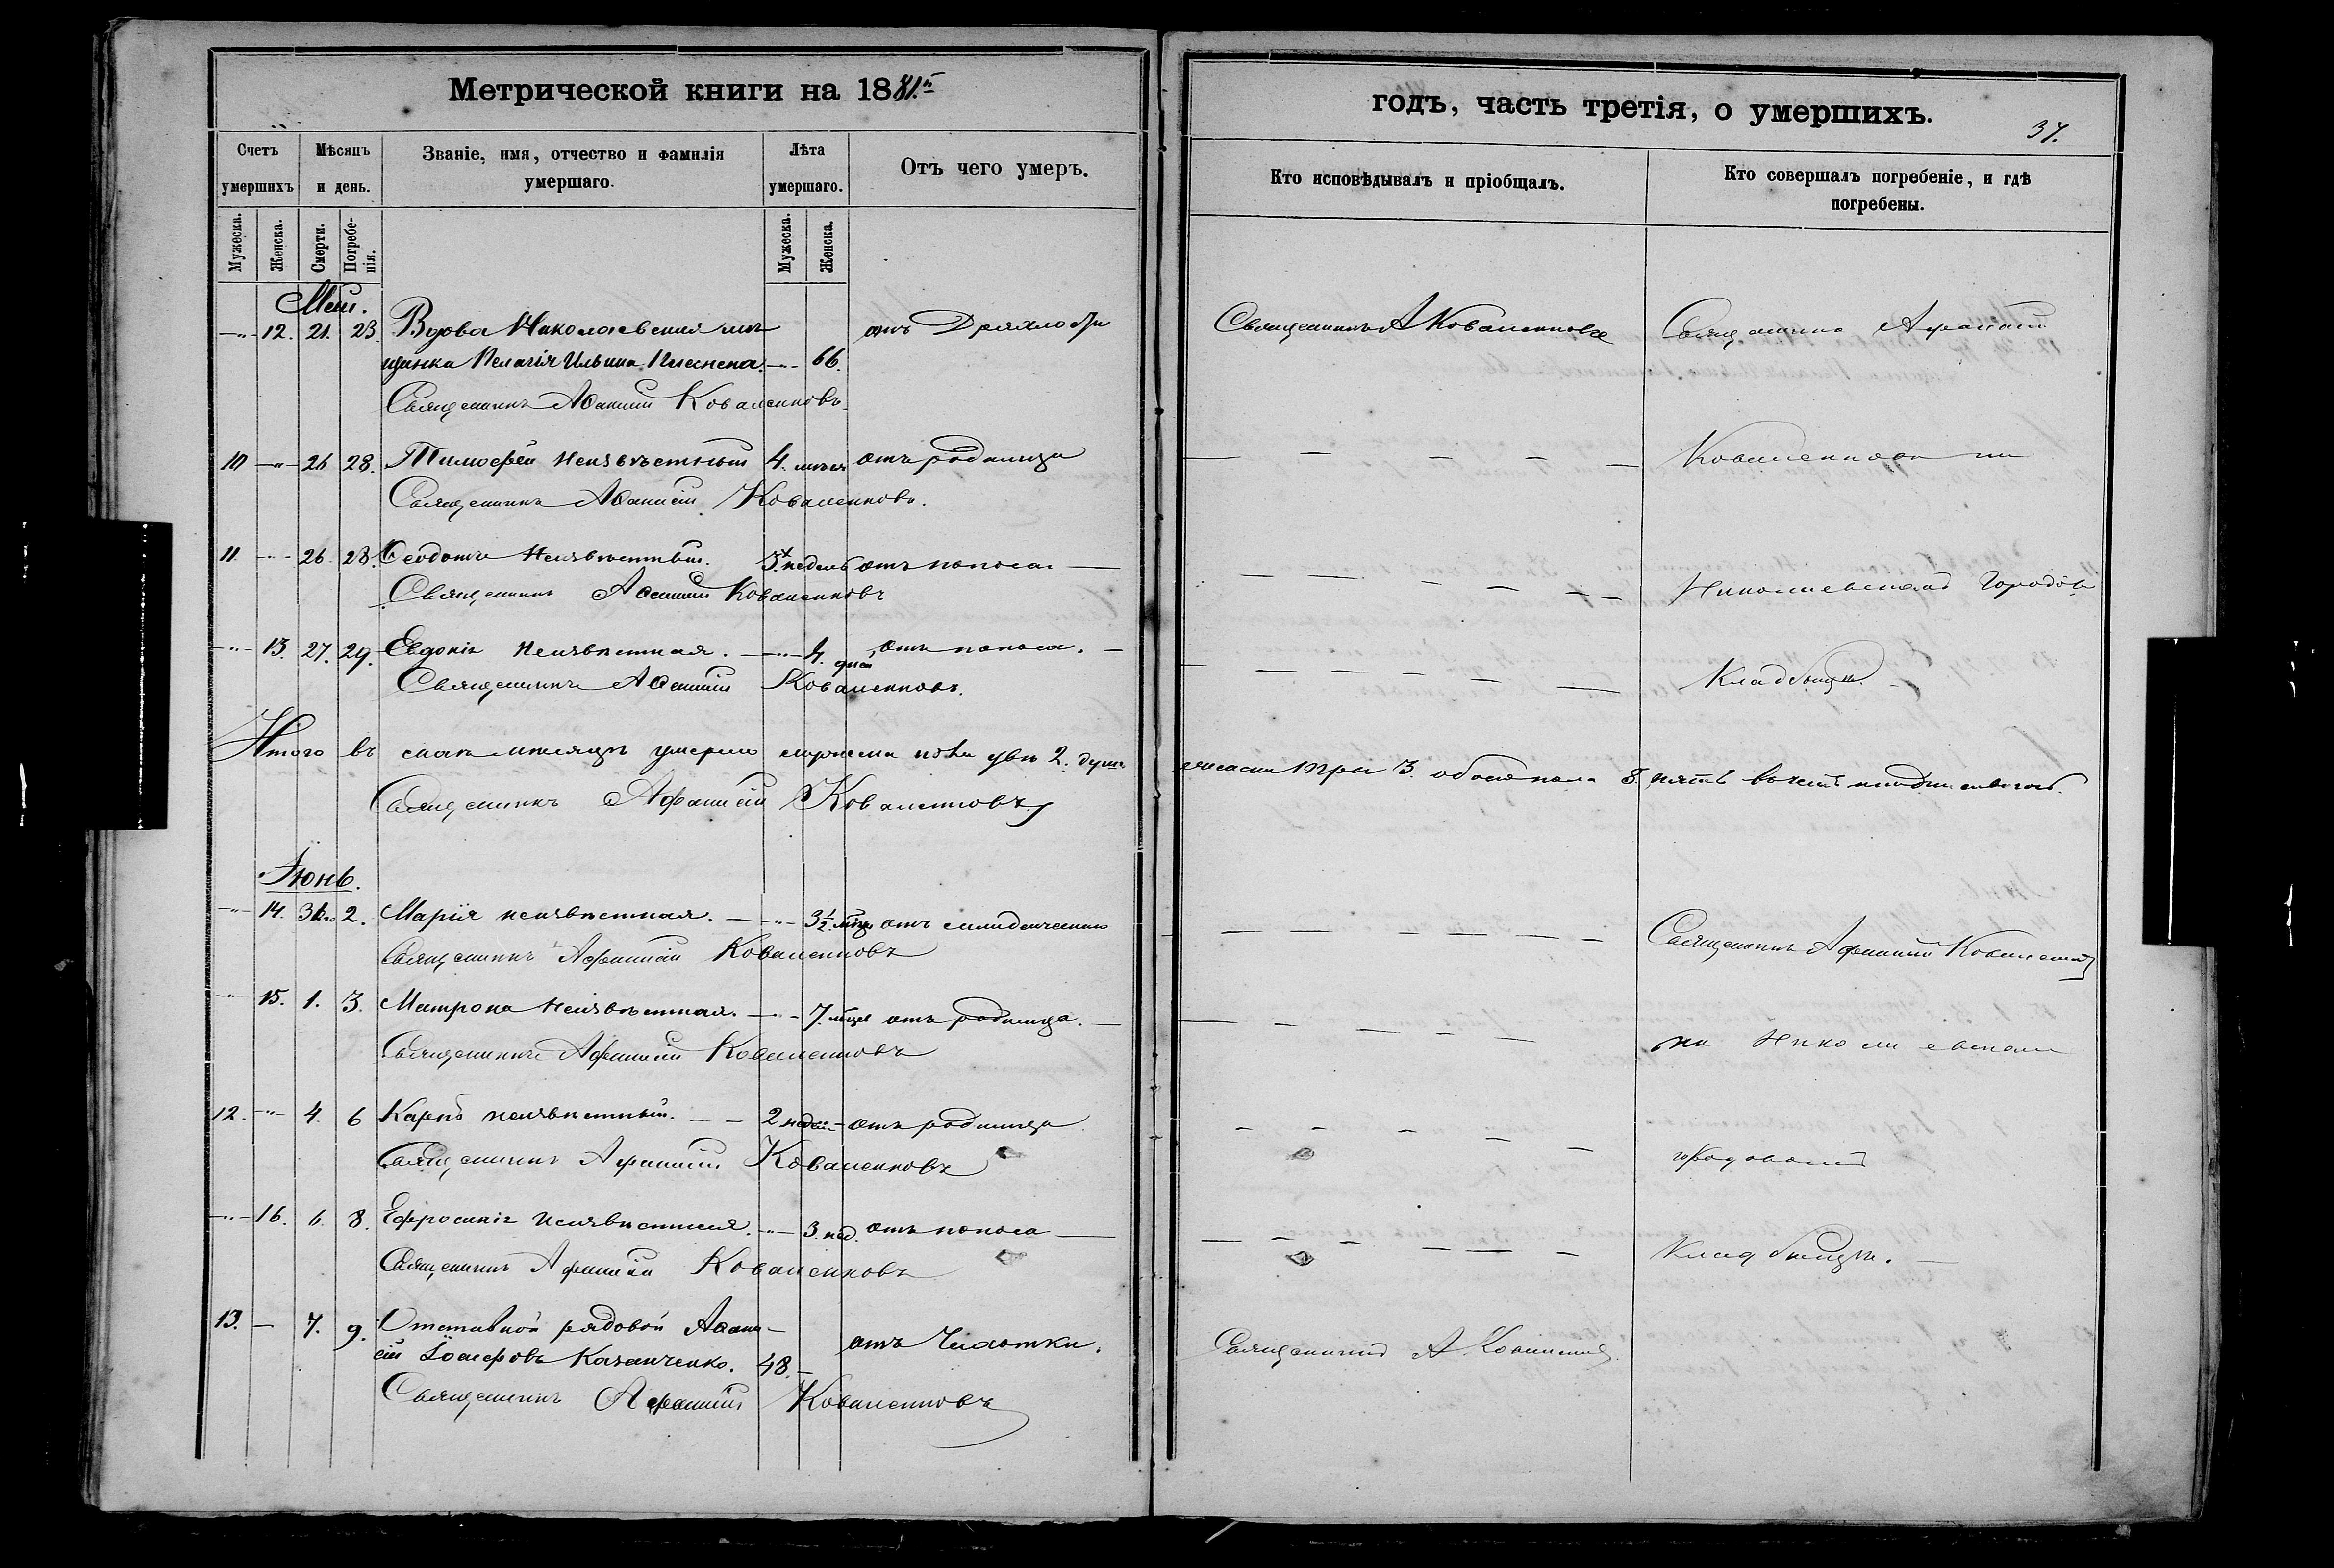 Метрической книги на 1881.й
годъ, часть третія, о умершихъ.
37.
Счетъ умершихъ
Мѣсяцъ и день.
Званіе, имя, отчество и фамилія умершаго.
Лѣта умершаго.
Отъ чего умеръ.
Кто исповѣдывалъ и пріобщалъ.
Кто совершалъ погребеніе, и гдѣ погребены.
Мужеска.
Женска.
Смерти.
Погребе-
нія.
Мужеска.
Женска.
Май.
12. 21. 23. Вдова Николаевская мѣ- отъ Дряхлости Священникъ А Коваленковъ Священникъ Афанасій
щанка Пелагія Ильина 66.
Священникъ Аѳанасій Коваленковъ
10 26 28. Тимоѳей Неизвѣстный 4. отъ родимца Коваленковъ на
Священникъ Аѳанасій Коваленковъ.
11. 26. 28. Ѳеодотъ Неизвѣстный. недель отъ поноса Николаевскомъ Городск
Священникъ Аѳанасій Коваленковъ
13. 27. 29. Евдокія Неизвѣстная. 4. дней отъ поноса. Кладбищѣ.
Священникъ Аѳанасій Коваленковъ.
Итого въ маѣ мѣсяцѣ умерло мужеска пола два 2. душъ женска три 3. обоего пола 5. пять
Священникъ Афанасій Коваленковъ
Іюнь.
14. 31. 2. Марія неизвѣстная. 3 1/2 мѣц отъ младенческой Священникъ Афанасій Коваленковъ
Священникъ Афанасій Коваленковъ
15. 1. 3. Матрона Неизвѣстная. 7. мѣцев отъ родимца. на Николаевскомъ
Священникъ Афанасій Коваленковъ
12. 4. 6 Карпъ неизвѣстный. 2 недели отъ родимца городскомъ
Священникъ Афанасій Коваленковъ
16. 6. 8. Ефросинія Неизвѣстная. 3. нед. отъ поноса Кладбищѣ.
Священникъ Афанасій Коваленковъ
13. 7. 9. Отставной рядовой Аѳана- отъ Чахотки. Священникъ А. Коваленковъ
сій Іосифовъ Казанченко. 48.
Священникъ Афанасій Коваленковъ